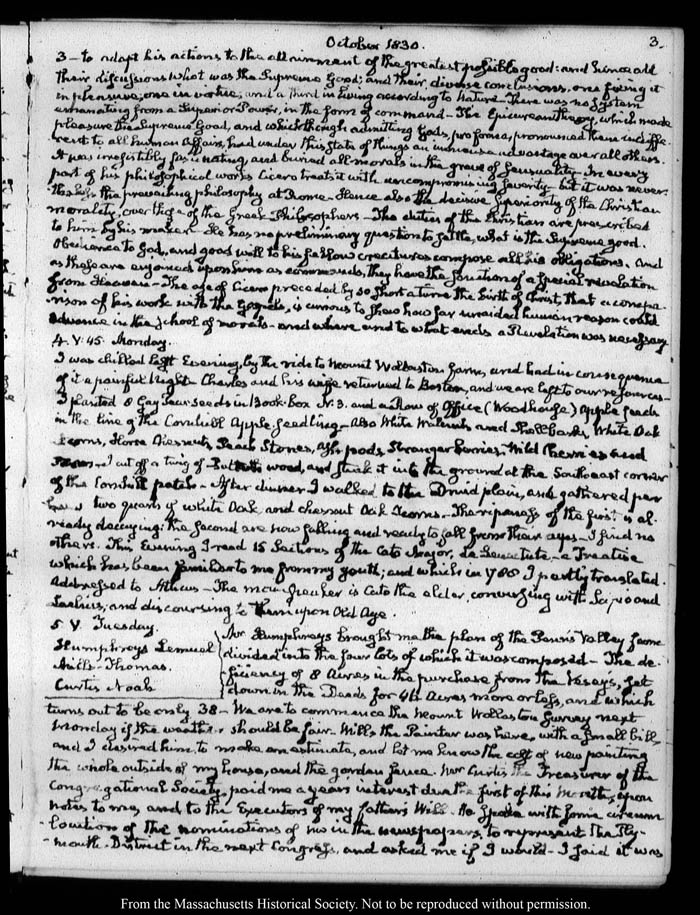 October 1830.
3.
3 – to adapt his actions to the attainment of the greatest possible good: and hence all
their discussions what was the Supreme Good; and their diverse conclusions, one fixing it
in pleasure, one in virtue, and a third in living according to Nature. There was no System
emanating from a Superior Power, in the form of command – The Epicurean theory, which made
pleasure the Supreme Good, and which though admitting Gods, pro forma, pronounced them indiffe-
rent to all human Affairs, had under this state of things an immense advantage over all others.
It was irresistibly fascinating, and buried all morals in the grave of Sensuality – In every
part of his philosophical works Cicero treats it with uncompromising severity – but it was never-
theless the prevailing philosophy at Rome – Hence also the decisive Superiority of the Christian
morality, over those of the Greek Philosophers – The duties of the Christian are prescribed
to him by his maker – He has no preliminary question to settle, what is the Supreme good.
Obedience to God, and good will to his fellow creatures compose all his obligations. And
as these are enjoined upon him as commands, they have the sanction of a special revelation
from Heaven – The age of Cicero preceded by so short a time the birth of Christ, that a compa-
rison of his work with the Gospels, is curious to shew how far unaided human reason could
advance in the School of morals – and where and to what ends a Revelation was necessary
4. V:45. Monday.
I was chilled last Evening, by the ride to Mount Wollaston farm, and had in consequence
of it a painful Night – Charles and his wife returned to Boston, and we are left to our resources –
I planted 8 Gay Pear seeds in Book-Box N. 3. and a Row of Office (Woodhouse) apple seeds
in the line of the Cornhill Apple seedling – Also White Walnuts and Shellbarks, White Oak
Acorns, Horse Chesnuts, Peach Stones, Ash pods, Stranger berries, Wild Cherries and
I cut off a twig of Button wood, and stuck it into the ground at the Southeast corner
of the Cornhill patch – After dinner I walked to the Druid plain, and gathered per-
haps two quarts of white Oak, and chesnut Oak Acorns – The ripeness of the first is al-
ready decaying: the second are now falling and ready to fall from their cups – I find no
others. This Evening I read 15 Sections of the Cato Major, de Senectute, a Treatise
which has been familiar to me from my youth; and which in 1788 I partly translated.
Addressed to Atticus – The main speaker is Cato the elder, conversing with Scipio and
Laelius; and discoursing to them upon Old Age.
5. V. Tuesday.
Humphreys Lemuel
Hills – Thomas.
Curtis Noah
Mr Humphreys brought me the plan of the Penn's Valley farm
divided into the four lots of which it was composed – The de-
ficiency of 8 Acres in the purchase from the Veseys, set
down in the Deeds for 46 Acres more or less, and which
turns out to be only 38 – We are to commence the Mount Wollaston Survey next
Monday if the weather should be fair. Hills the Painter was here, with a small bill,
and I desired him to make an estimate, and let me know the cost of new painting
the whole outside of my house, and the garden fence. Mr Curtis the Treasurer of the
Congregational Society, paid me a years interest due the first of this Month, upon
notes to me, and to the Executors of my father's Will. He spoke with some circum-
locution of the nominations of me in the newspapers, to represent the Ply-
mouth District in the next Congress, and asked me if I would – I said it was
From the Massachusetts Historical Society. Not to be reproduced without permission.